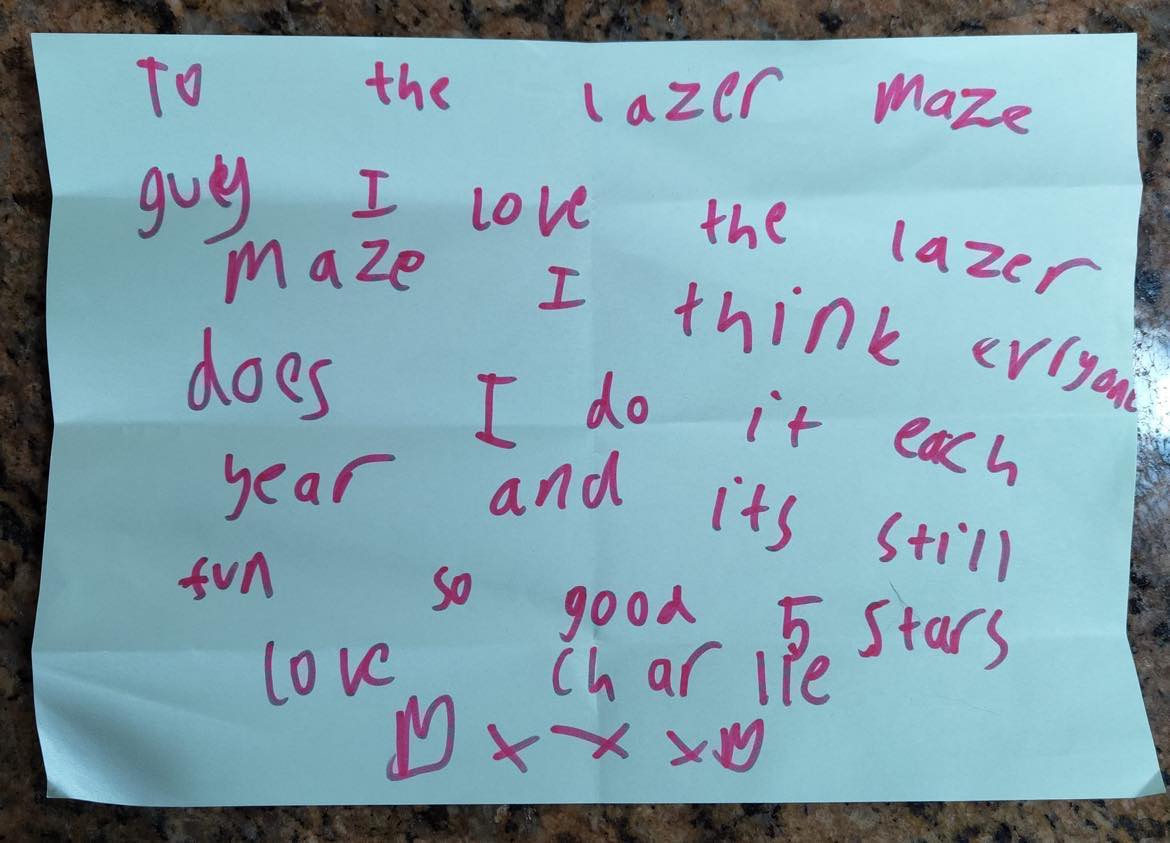 To the lazer maze
guey I love the lazer
maze I think evryone
does I do it each
year and its still
fun so good 5 stars
love charlie
x x x